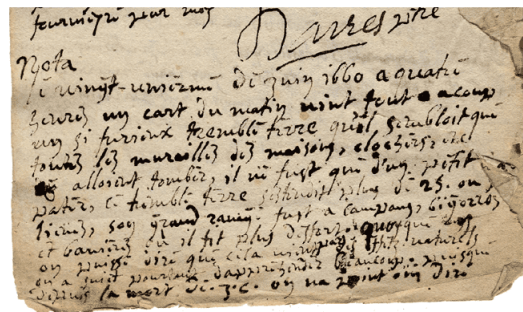 Barres ptre
Nota
le vingt-uniesme de juin 1660 a quatre
heures un cart du matin vint tout a coup
un si furieux tremble terre quil sembloit que
toutes les murailles des maisons, clochers, etc
alloient tomber, il ne fust que d'un petit
pater, ce tremble terre sestendist plus de 25. ou
lieues, son grand ravage fust a Campan, Bigorre
et banieres ou il fit plus quoyque
on puisse dire que cela vinst naturels
on a sujet pourtant dapprehender beaucoup, puisque
depuis la mort de J.C. on na point ouy dire